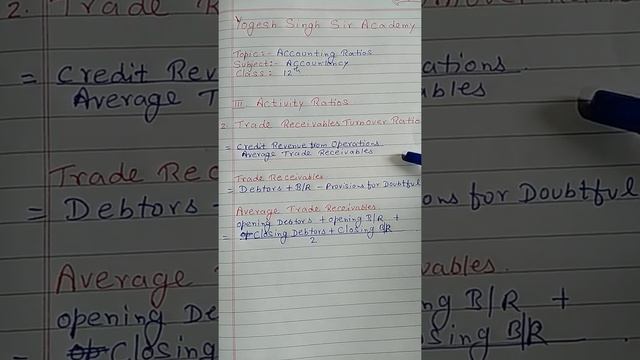 Yogesh Singh Sir Academy
Topic:- Accounting Ratios
Subject:- Accountancy
Class: 12th
III. Activity Ratios
2. Trade Receivables Turnover Ratio
= Credit Revenue from Operations
Average Trade Receivables
Trade Receivables
= Debtors + B/R - Provisions for Doubtful
Average Trade Receivables
opening Debtors + opening B/R +
= Closing Debtors + Closing B/R
2